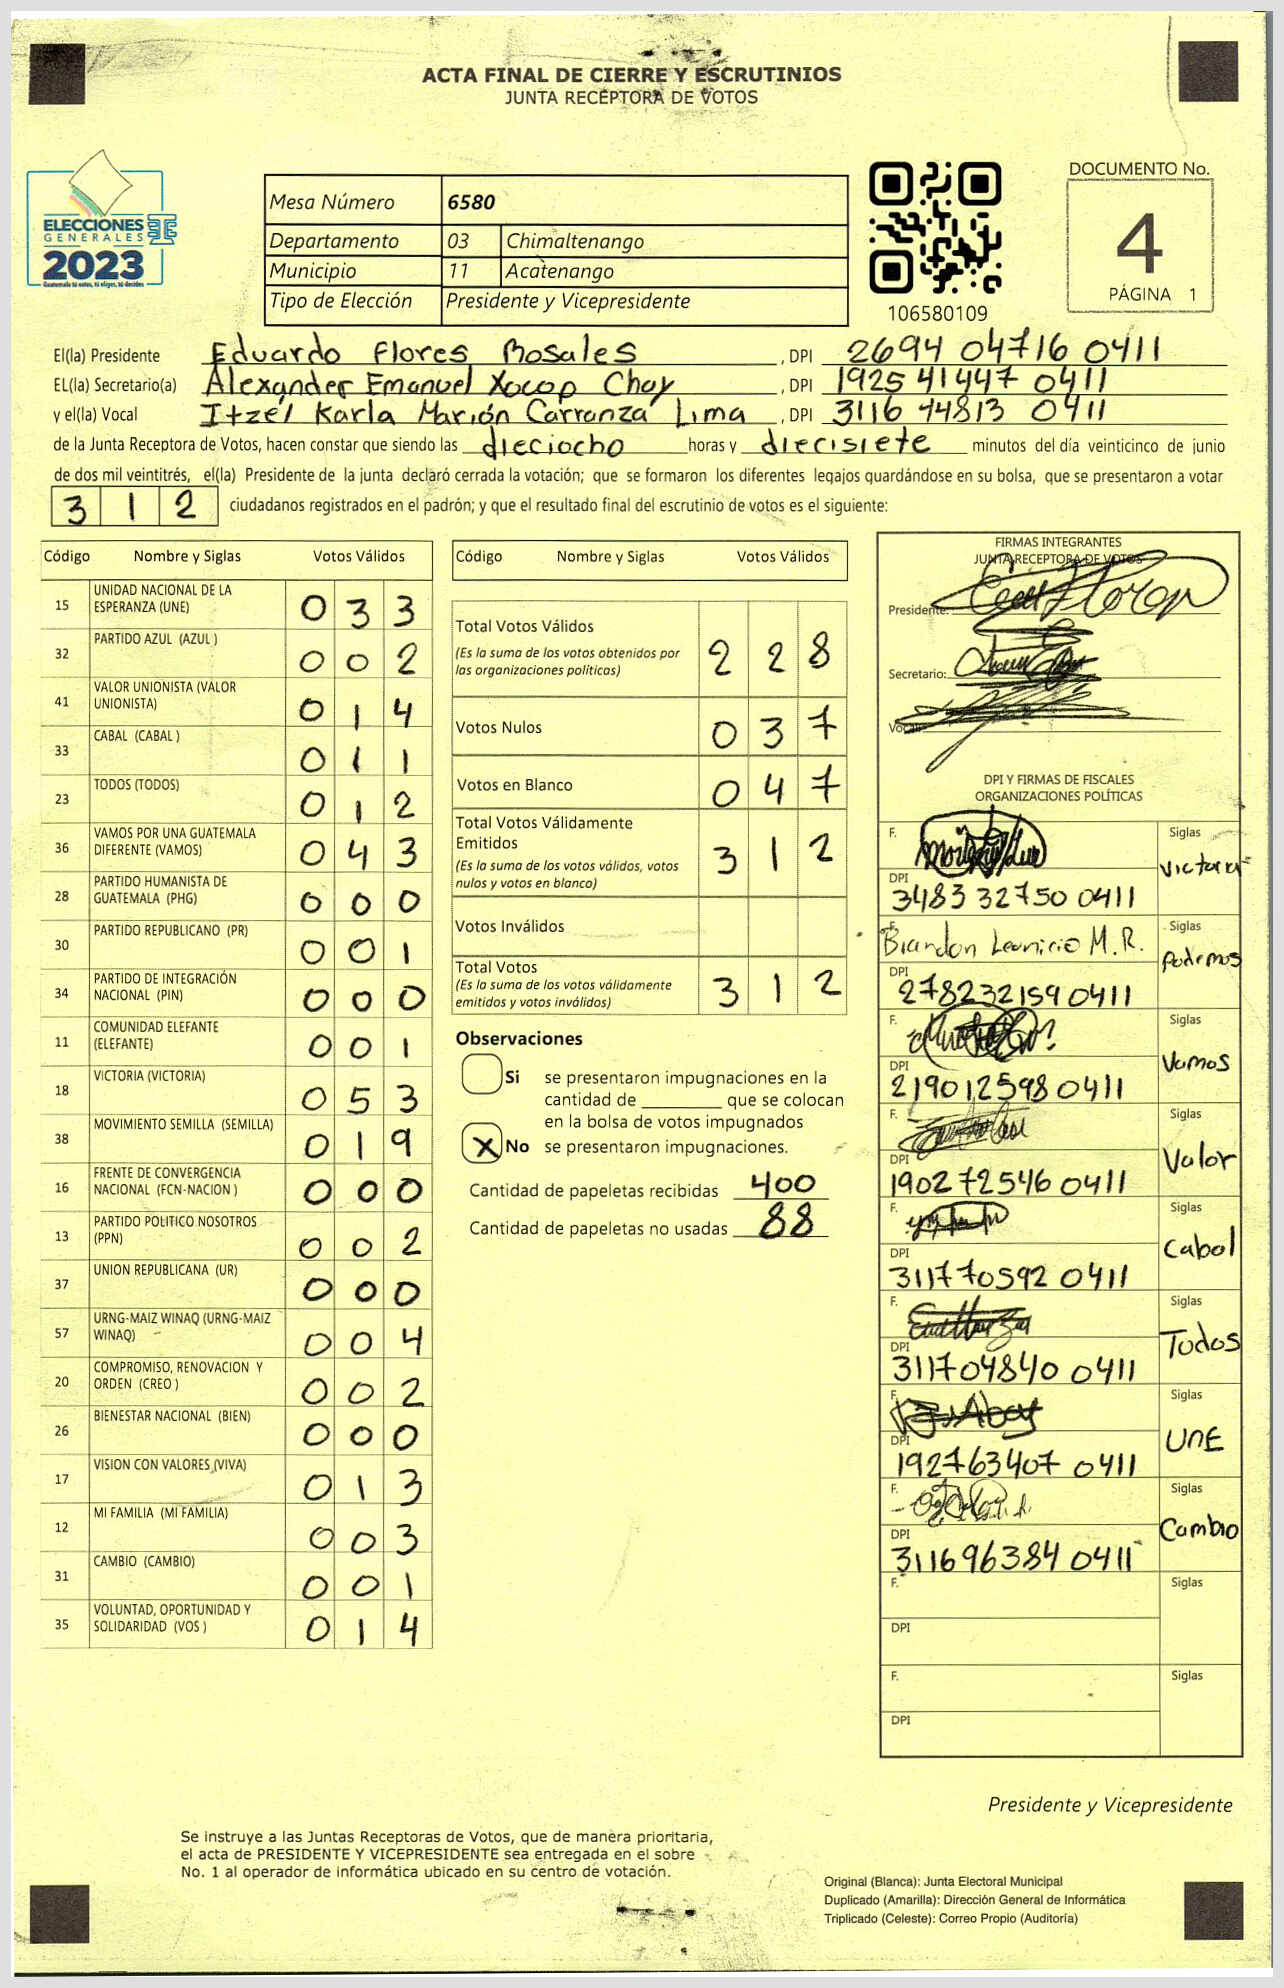 ACTA FINAL DE CIERRE Y ESCRUTINIOS
JUNTA RECEPTORA DE VOTOS
ELECCIONES
GENERALES
2023
Guatemala tú votas, tú eliges, tú decides
Mesa Número 6580
Departamento 03 Chimaltenango
Municipio 11 Acatenango
Tipo de Elección Presidente y Vicepresidente
106580109
DOCUMENTO No.
4
PÁGINA 1
El(la) Presidente Eduardo Flores Rosales, DPI 2694 04716 0411
EL(la) Secretario(a) Alexander Emanuel Xocop Choy, DPI 1925 41447 0411
y el(la) Vocal Itzel Karla Marión Carranza Lima, DPI 3116 44813 0411
de la Junta Receptora de Votos, hacen constar que siendo las dieciocho horas y diecisiete minutos del día veinticinco de junio
de dos mil veintitrés, el(la) Presidente de la junta declaró cerrada la votación; que se formaron los diferentes legajos guardándose en su bolsa, que se presentaron a votar
312 ciudadanos registrados en el padrón; y que el resultado final del escrutinio de votos es el siguiente:
Código Nombre y Siglas Votos Válidos
15 UNIDAD NACIONAL DE LA ESPERANZA (UNE) 033
32 PARTIDO AZUL (AZUL ) 002
41 VALOR UNIONISTA (VALOR UNIONISTA) 014
33 CABAL (CABAL ) 011
23 TODOS (TODOS) 012
36 VAMOS POR UNA GUATEMALA DIFERENTE (VAMOS) 043
28 PARTIDO HUMANISTA DE GUATEMALA (PHG) 000
30 PARTIDO REPUBLICANO (PR) 001
34 PARTIDO DE INTEGRACIÓN NACIONAL (PIN) 000
11 COMUNIDAD ELEFANTE (ELEFANTE) 001
18 VICTORIA (VICTORIA) 053
38 MOVIMIENTO SEMILLA (SEMILLA) 019
16 FRENTE DE CONVERGENCIA NACIONAL (FCN-NACION ) 000
13 PARTIDO POLITICO NOSOTROS (PPN) 002
37 UNION REPUBLICANA (UR) 000
57 URNG-MAIZ WINAQ (URNG-MAIZ WINAQ) 004
20 COMPROMISO, RENOVACION Y ORDEN (CREO ) 002
26 BIENESTAR NACIONAL (BIEN) 000
17 VISION CON VALORES (VIVA) 013
12 MI FAMILIA (MI FAMILIA) 003
31 CAMBIO (CAMBIO) 001
35 VOLUNTAD, OPORTUNIDAD Y SOLIDARIDAD (VOS ) 014
Código Nombre y Siglas Votos Válidos
Total Votos Válidos 228
(Es la suma de los votos obtenidos por
las organizaciones políticas)
Votos Nulos 037
Votos en Blanco 047
Total Votos Válidamente
Emitidos 312
(Es la suma de los votos válidos, votos
nulos y votos en blanco)
Votos Inválidos
Total Votos 312
(Es la suma de los votos válidamente
emitidos y votos inválidos)
Observaciones
Si se presentaron impugnaciones en la
cantidad de ________ que se colocan
en la bolsa de votos impugnados
X No se presentaron impugnaciones.
Cantidad de papeletas recibidas 400
Cantidad de papeletas no usadas 88
FIRMAS INTEGRANTES
JUNTA RECEPTORA DE VOTOS
Presidente:
Secretario:
Vocal:
DPI Y FIRMAS DE FISCALES
ORGANIZACIONES POLÍTICAS
F. Siglas Victoria
DPI 3483 32750 0411
F. Brandon Leonicio M.R. Siglas Podemos
DPI 278232159 0411
F. Siglas Vamos
DPI 219012598 0411
F. Siglas Valor
DPI 190272546 0411
F. Siglas Cabal
DPI 311770592 0411
F. Siglas Todos
DPI 311704840 0411
F. Siglas UNE
DPI 192763407 0411
F. Siglas Cambio
DPI 311696384 0411
F. Siglas
DPI
F. Siglas
DPI
Presidente y Vicepresidente
Se instruye a las Juntas Receptoras de Votos, que de manera prioritaria,
el acta de PRESIDENTE Y VICEPRESIDENTE sea entregada en el sobre
No. 1 al operador de informática ubicado en su centro de votación.
Original (Blanca): Junta Electoral Municipal
Duplicado (Amarilla): Dirección General de Informática
Triplicado (Celeste): Correo Propio (Auditoría)